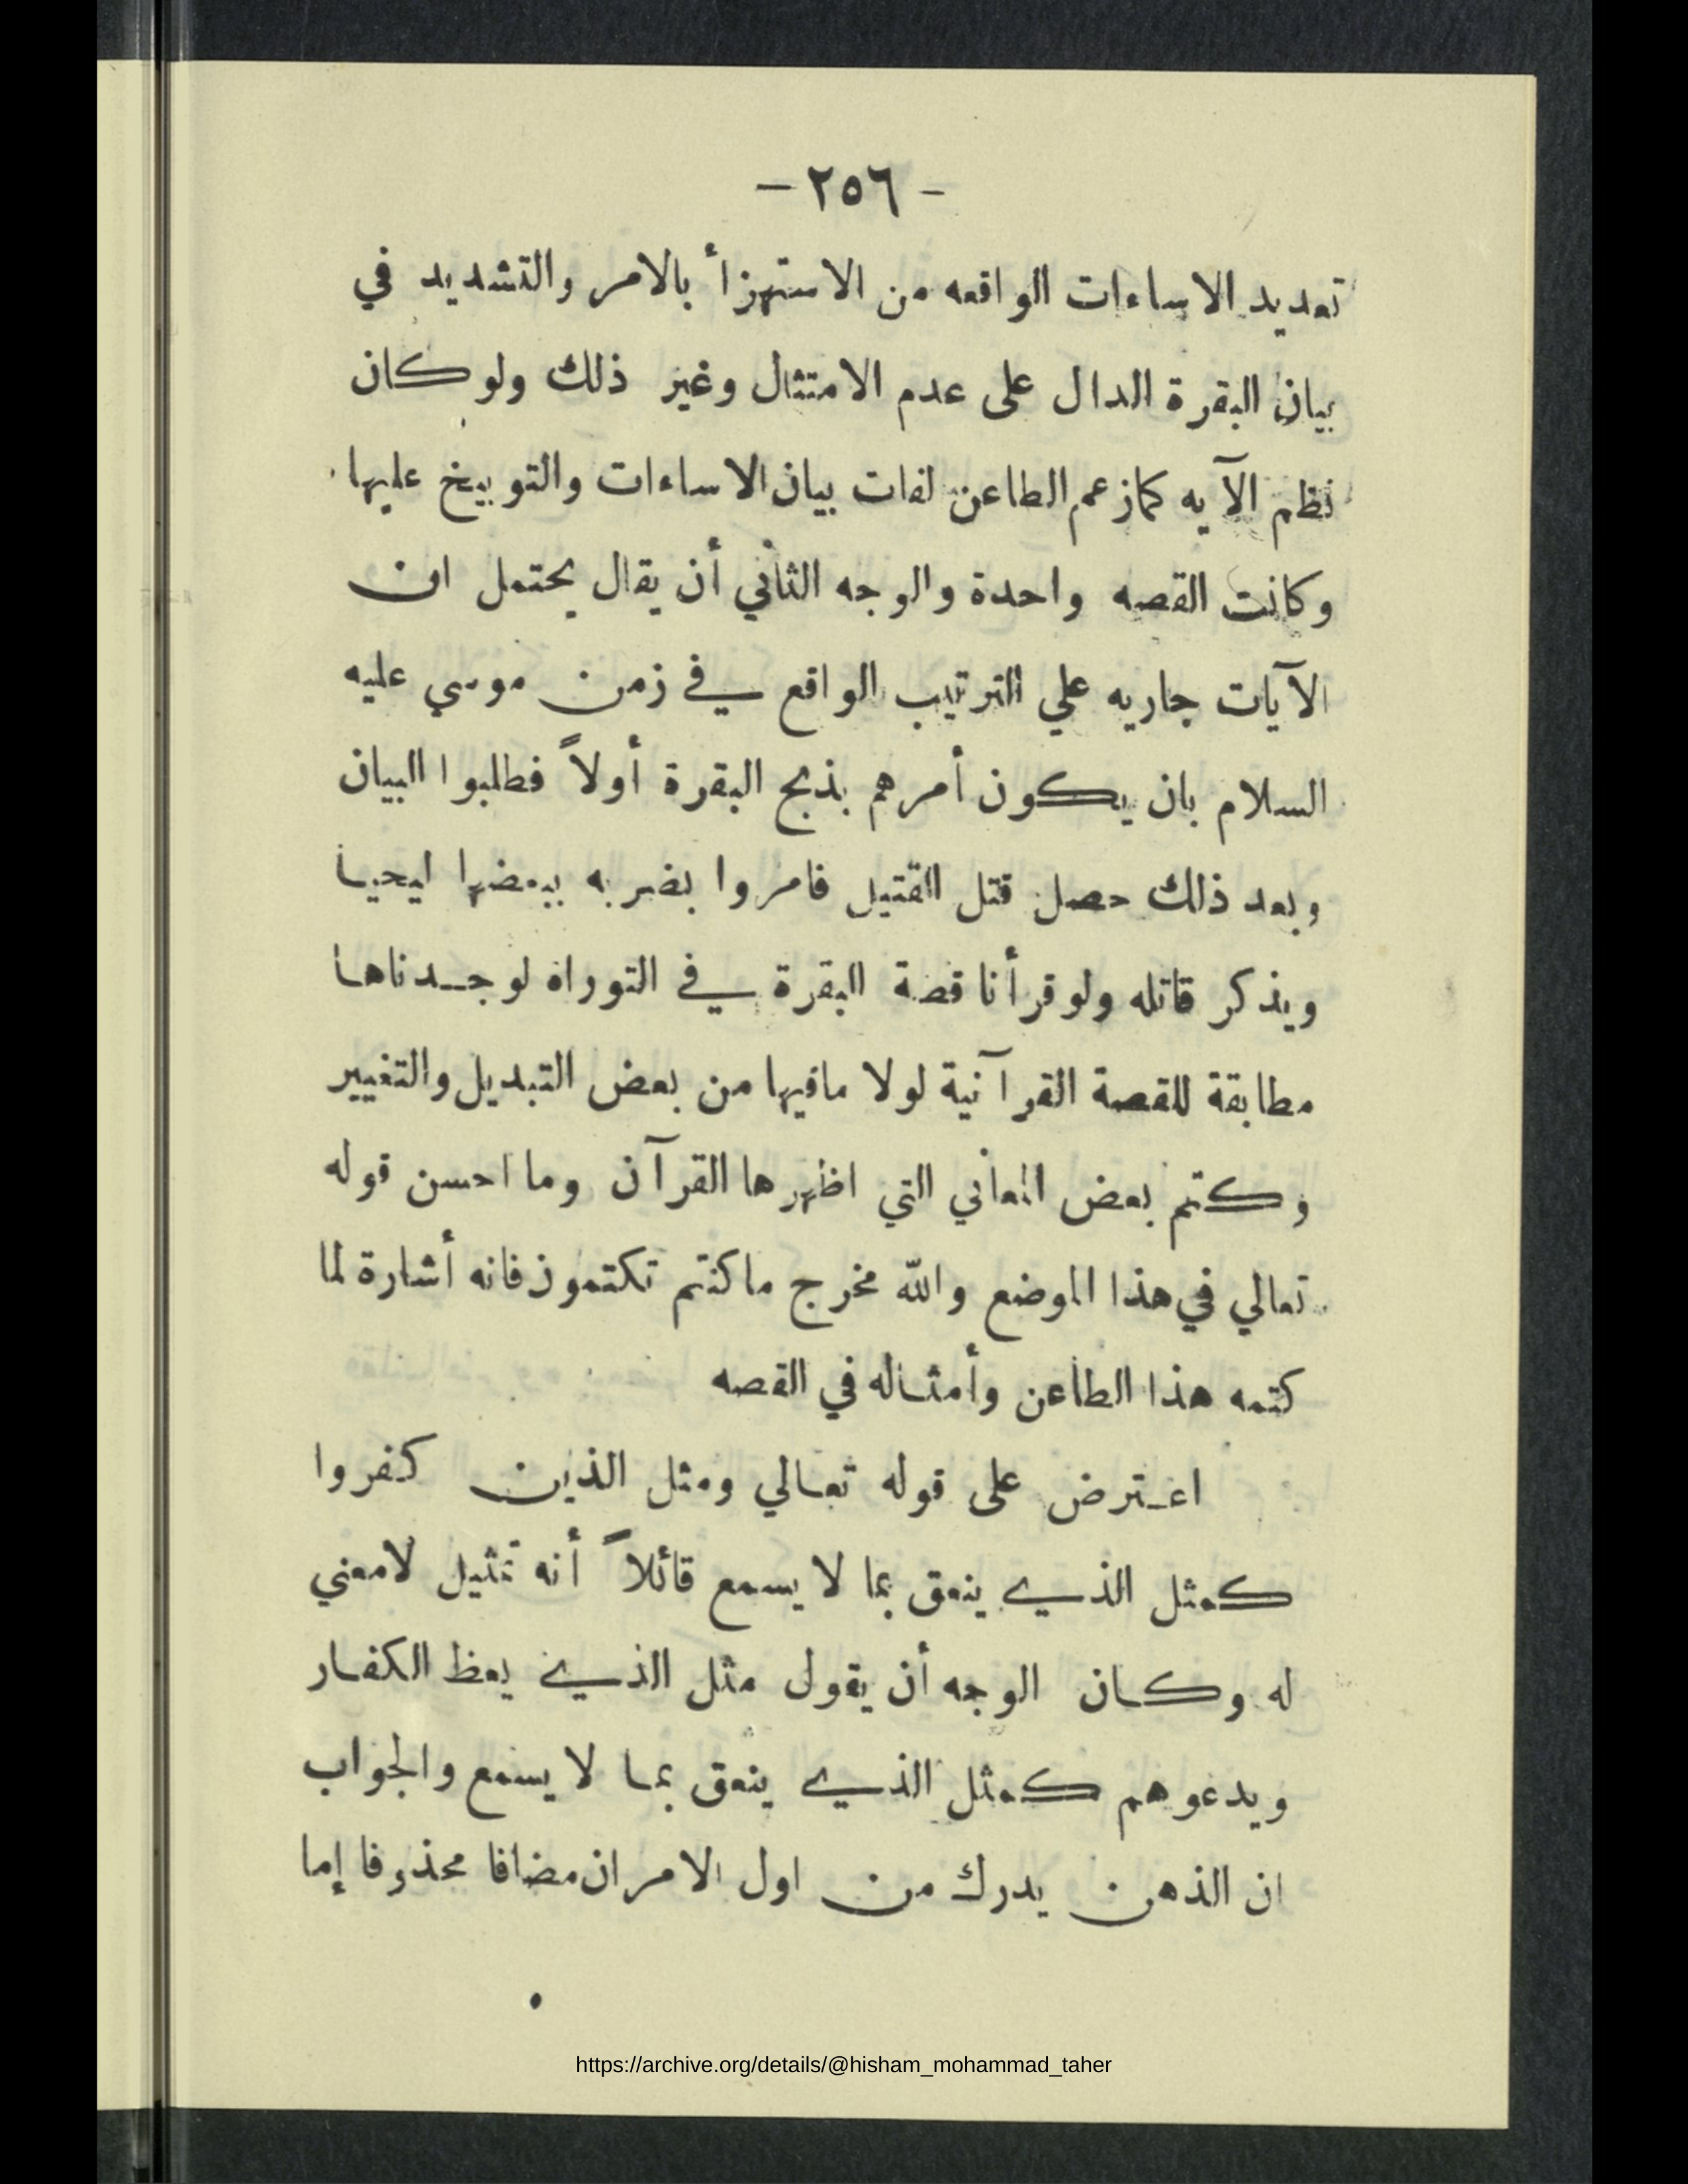 - ٢٥٦ -
تعديد الاساءات الواقعه من الاستهزأ بالامر والتشديد في
بيان البقرة الدال على عدم الامتثال وغير ذلك ولو كان
نظم الآيه كمازعم الطاعن لفات بيان الاساءات والتوبيخ عليها
وكانت القصه واحدة والوجه الثاني أن يقال يحتمل ان
الآيات جاريه علي الترتيب الواقع في زمن موسي عليه
السلام بان يكون أمرهم بذبح البقرة أولاً فطلبوا البيان
وبعد ذلك حصل قتل القتيل فامروا بضربه ببعضها ليحيا
ويذكر قاتله ولو قرأنا قصة البقرة في التوراه لوجدناها
مطابقة للقصة القرآنية لولا مافيها من بعض التبديل والتغيير
وكتم بعض المعاني التي اظهرها القرآن وما احسن قوله
تعالي في هذا الموضع والله مخرج ماكنتم تكتمون فانه أشارة لما
كتمه هذا الطاعن وأمثاله في القصه
اعترض على قوله تعالي ومثل الذين كفروا
كمثل الذي ينعق بما لا يسمع قائلاً أنه تمثيل لامعني
له وكان الوجه أن يقول مثل الذي يعظ الكفار
ويدعوهم كمثل الذي ينعق بما لا يسمع والجواب
ان الذهن يدرك من اول الامران مضافا محذوفا إما
https://archive.org/details/@hisham_mohammad_taher